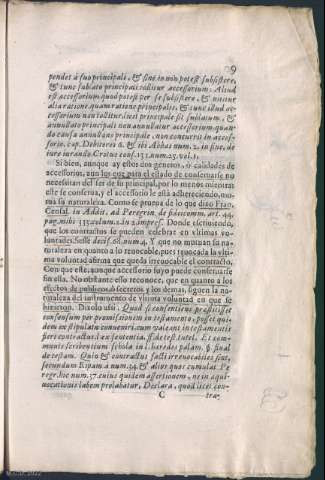 9
pendet à suo principali, & sine in nõ potest subsistere,
& tunc sublato principali tollitur accessorium: Aliud
est accessorium quod potest per se subsistere, & nititur
alia ratione, quam ratione principalis, & tunc illud ac-
cessorium non tollitur, licet principale sit sublatum, &
annullato principali non annullatur accessorium, quan-
do causa annullans principale, non concurrit in acces-
sorio, cap. Debitores 6. & ibi Abbas num. 2. in fine, de
iure iurando. Crotus cons. 153. num. 25. vol. 1.
Si bien, aunque ay estos dos generos, ò calidades de
accessorio, aun los que para el estado de conseruarse no
necesitan del ser de su principal, por lo menos mientras
este se conserua, y el accessorio le està adhereciendo, nun-
ca su naturaleza. Como se prueba de lo que dixo Fran.
Censal, in Addit. ad Peregrin. de fideicomm. art. 44.
pag. mihi 153. ad num. 2. in 2. impres. Donde escriuiendo,
que los contractos se pueden celebrar en vltimas vo-
luntades. Sesse decis. 68. num. 4. Y que no mutuan su na-
turaleza en quanto à lo reuocable, pues reuocada la vlti-
ma voluntad afirma que queda irreuocable el contracto.
Con que este, aunque accessorio suyo puede conseruarse
sin ella. No obstante esso reconoce, que en quanto à los
efectos de publicarse secretos, y los demas, siguen la na-
turaleza del instrumento de vltima voluntad en que se
hizieron. Dixolo assi: Quod si consentiens præstitisset
consensum per promissionem in testamento, posset qui-
dem ex stipulatu conueniri, cum valeant in testamentis
geri contractus l. ex sententia, ff. de test. tutel. Et com-
munite scribentium schola in l. haredes palam. §. final
de testam. Quin & contractus facti irreuocabiles sint,
secundum Ripam à num. 24. & alios quos cumulat Pe
regr. hic num. 17. cuius quidem assersionem, ne in aqui-
uocationis labem prolabatur, Declara, quod licet con-
C
trac-